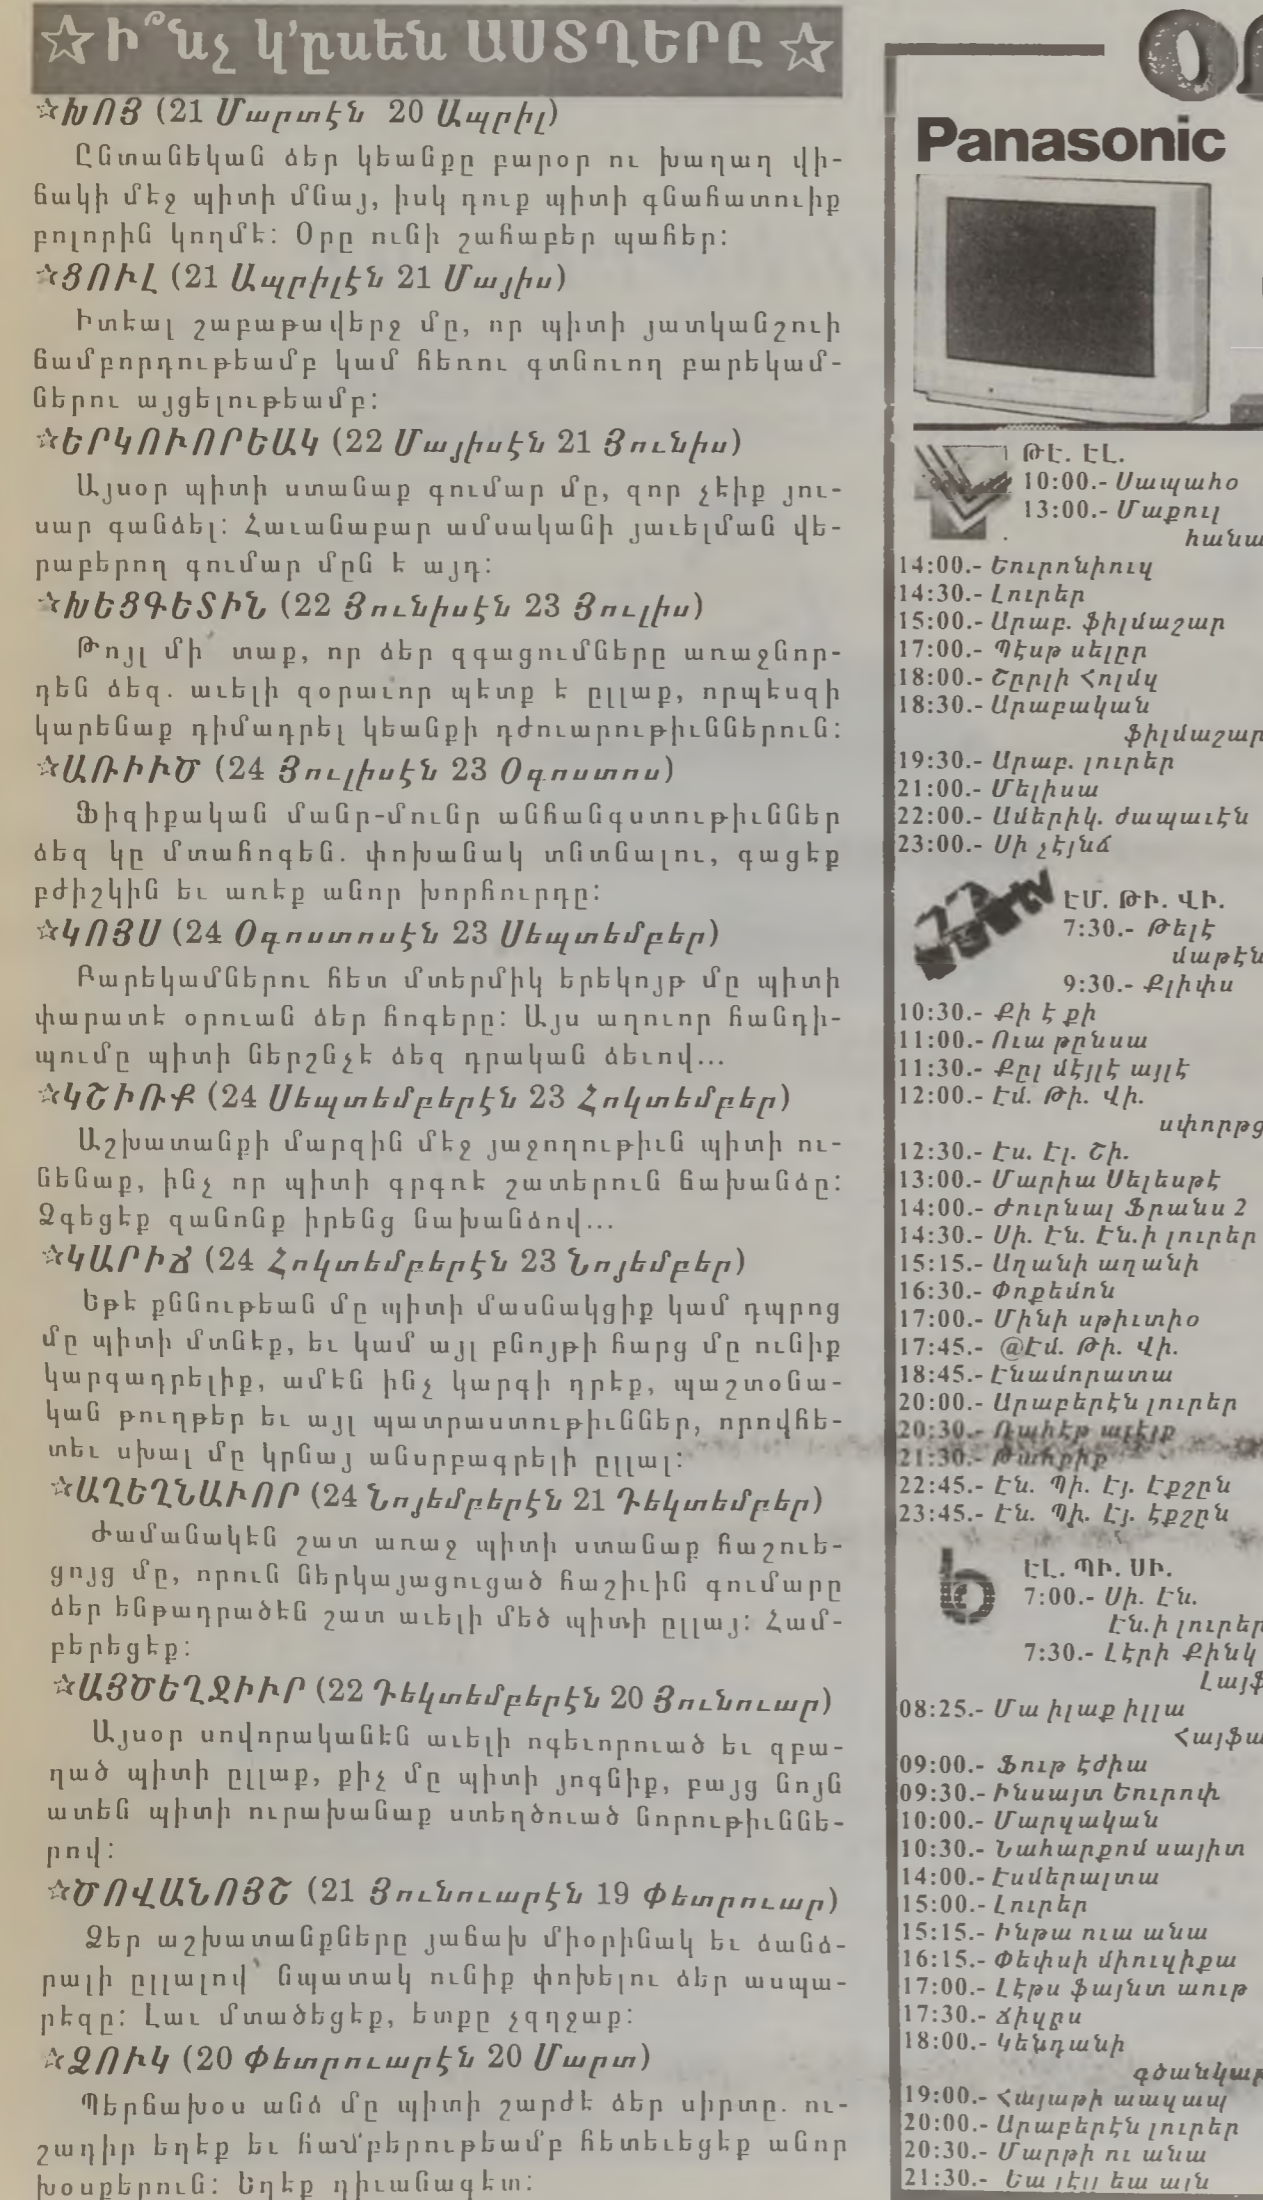 ☆ Ի՞նչ կ'ըսեն ԱՍՏՂԵՐԸ ☆
☆ԽՈՅ (21 Մարտէն 20 Ապրիլ)
Ընտանեկան ձեր կեանքը բարօր ու խաղաղ վի-
ճակի մէջ պիտի մնայ, իսկ դուք պիտի գնահատուիք
բոլորին կողմէ: Օրը ունի շահաբեր պահեր:
☆ՑՈՒԼ (21 Ապրիլէն 21 Մայիս)
Իտէալ շաբաթավերջ մը, որ պիտի յատկանշուի
ճամբորդութեամբ կամ հեռու գտնուող բարեկամ-
ներու այցելութեամբ:
☆ԵՐԿՈՒՈՐԵԱԿ (22 Մայիսէն 21 Յունիս)
Այսօր պիտի ստանաք գումար մը, զոր չէիք յու-
սար գանձել: Հաւանաբար ամսականի յաւելման վե-
րաբերող գումար մըն է այդ:
☆ԽԵՑԳԵՏԻՆ (22 Յունիսէն 23 Յուլիս)
Թոյլ մի՛ տաք, որ ձեր զգացումները առաջնոր-
դեն ձեզ. աւելի զօրաւոր պէտք է ըլլաք, որպէսզի
կարենաք դիմադրել կեանքի դժուարութիւններուն:
☆ԱՌԻԻԾ (24 Յուլիսէն 23 Օգոստոս)
Ֆիզիքական մանր-մունր անհանգստութիւններ
ձեզ կը մտահոգեն. փոխանակ տնտնալու, գացէք
բժիշկին եւ առէք անոր խորհուրդը:
☆ԿՈՅՍ (24 Օգոստոսէն 23 Սեպտեմբեր)
Բարեկամներու հետ մտերմիկ երեկոյթ մը պիտի
փարատէ օրուան ձեր հոգերը: Այս աղուոր հանդի-
պումը պիտի ներշնչէ ձեզ դրական ձեւով...
☆ԿՇԻՌՔ (24 Սեպտեմբերէն 23 Հոկտեմբեր)
Աշխատանքի մարզին մէջ յաջողութիւն պիտի ու-
նենաք, ինչ որ պիտի գրգռէ շատերուն նախանձը:
Ձգեցէք զանոնք իրենց նախանձով...
☆ԿԱՐԻՃ (24 Հոկտեմբերէն 23 Նոյեմբեր)
Եթէ քննութեան մը պիտի մասնակցիք կամ դպրոց
մը պիտի մտնէք, եւ կամ այլ բնոյթի հարց մը ունիք
կարգադրելիք, ամէն ինչ կարգի դրէք, պաշտօնա-
կան թուղթեր եւ այլ պատրաստութիւններ, որովհե-
տեւ սխալ մը կրնայ անսրբագրելի ըլլալ:
☆ԱՂԵՂՆԱՒՈՐ (24 Նոյեմբերէն 21 Դեկտեմբեր)
Ժամանակէն շատ առաջ պիտի ստանաք հաշուե-
ցոյց մը, որուն ներկայացուցած հաշիւին գումարը
ձեր ենթադրածէն շատ աւելի մեծ պիտի ըլլայ: Համ-
բերեցէք:
☆ԱՅԾԵՂՋԻՒՐ (22 Դեկտեմբերէն 20 Յունուար)
Այսօր սովորականէն աւելի ոգեւորուած եւ զբա-
ղած պիտի ըլլաք, քիչ մը պիտի յոգնիք, բայց նոյն
ատեն պիտի ուրախանաք ստեղծուած նորութիւննե-
րով:
☆ԾՈՎԱՆՈՅՇ (21 Յունուարէն 19 Փետրուար)
Ձեր աշխատանքները յաճախ միօրինակ եւ ձանձ-
րալի ըլլալով՝ նպատակ ունիք փոխելու ձեր ասպա-
րէզը: Լաւ մտածեցէք, ետքը չզղջաք:
☆ՁՈՒԿ (20 Փետրուարէն 20 Մարտ)
Պերճախօս անձ մը պիտի շարժէ ձեր սիրտը. ու-
շադիր եղէք եւ համբերութեամբ հետեւեցէք անոր
խօսքերուն: Եղէք դիւանագէտ:
Panasonic
ԹԷ. ԷԼ.
10:00.- Սապահօ
13:00.- Մաքուլ
հանա
14:00.- Եուրոնիուզ
14:30.- Լուրեր
15:00.- Արաբ. ֆիլմաշար
17:00.- Պէսթ սելըր
18:00.- Շըրլի Հոլմզ
18:30.- Արաբական
ֆիլմաշար
19:30.- Արաբ. լուրեր
21:00.- Մելիսա
22:00.- Ամերիկ. ժապաւէն
23:00.- Սի չէյնճ
ԷՄ. ԹԻ. ՎԻ.
7:30.- Թելէ
մաթէն
9:30.- Քլիփս
10:30.- Քի է քի
11:00.- Ուա թընսա
11:30.- Քըլ մէյլէ այլէ
12:00.- Էմ. Թի. Վի.
սփորթց
12:30.- Էս. Էլ. Շի.
13:00.- Մարիա Սելեսթէ
14:00.- Ժուրնալ Ֆրանս 2
14:30.- Սի. Էն. Էն.ի լուրեր
15:15.- Աղանի աղանի
16:30.- Փոքեմոն
17:00.- Մինի սթիւտիօ
17:45.- @Էմ. Թի. Վի.
18:45.- Էնամորատա
20:00.- Արաբերէն լուրեր
20:30.- Ռահէթ ալէյք
21:30.- Թահքիք
22:45.- Էն. Պի. Էյ. Էքշըն
23:45.- Էն. Պի. Էյ. Էքշըն
ԷԼ. ՊԻ. ՍԻ.
7:00.- Սի. Էն.
Էն.ի լուրեր
7:30.- Լէրի Քինկ
Լայֆ
08:25.- Մա իլաք իլլա
Հայֆա
09:00.- Ֆութ էժիա
09:30.- Ինսայտ Եուրոփ
10:00.- Մարզական
10:30.- Նահարքոմ սայիտ
14:00.- Էսմերալտա
15:00.- Լուրեր
15:15.- Ինթա ուա անա
16:15.- Փեփսի միուզիքա
17:00.- Լէթս ֆայնտ աութ
17:30.- Ճիզըս
18:00.- Կենդանի
գծանկար
19:00.- Հայաթի աազապ
20:00.- Արաբերէն լուրեր
20:30.- Մարթի ու անա
21:30.- Եա լէյլ եա այն